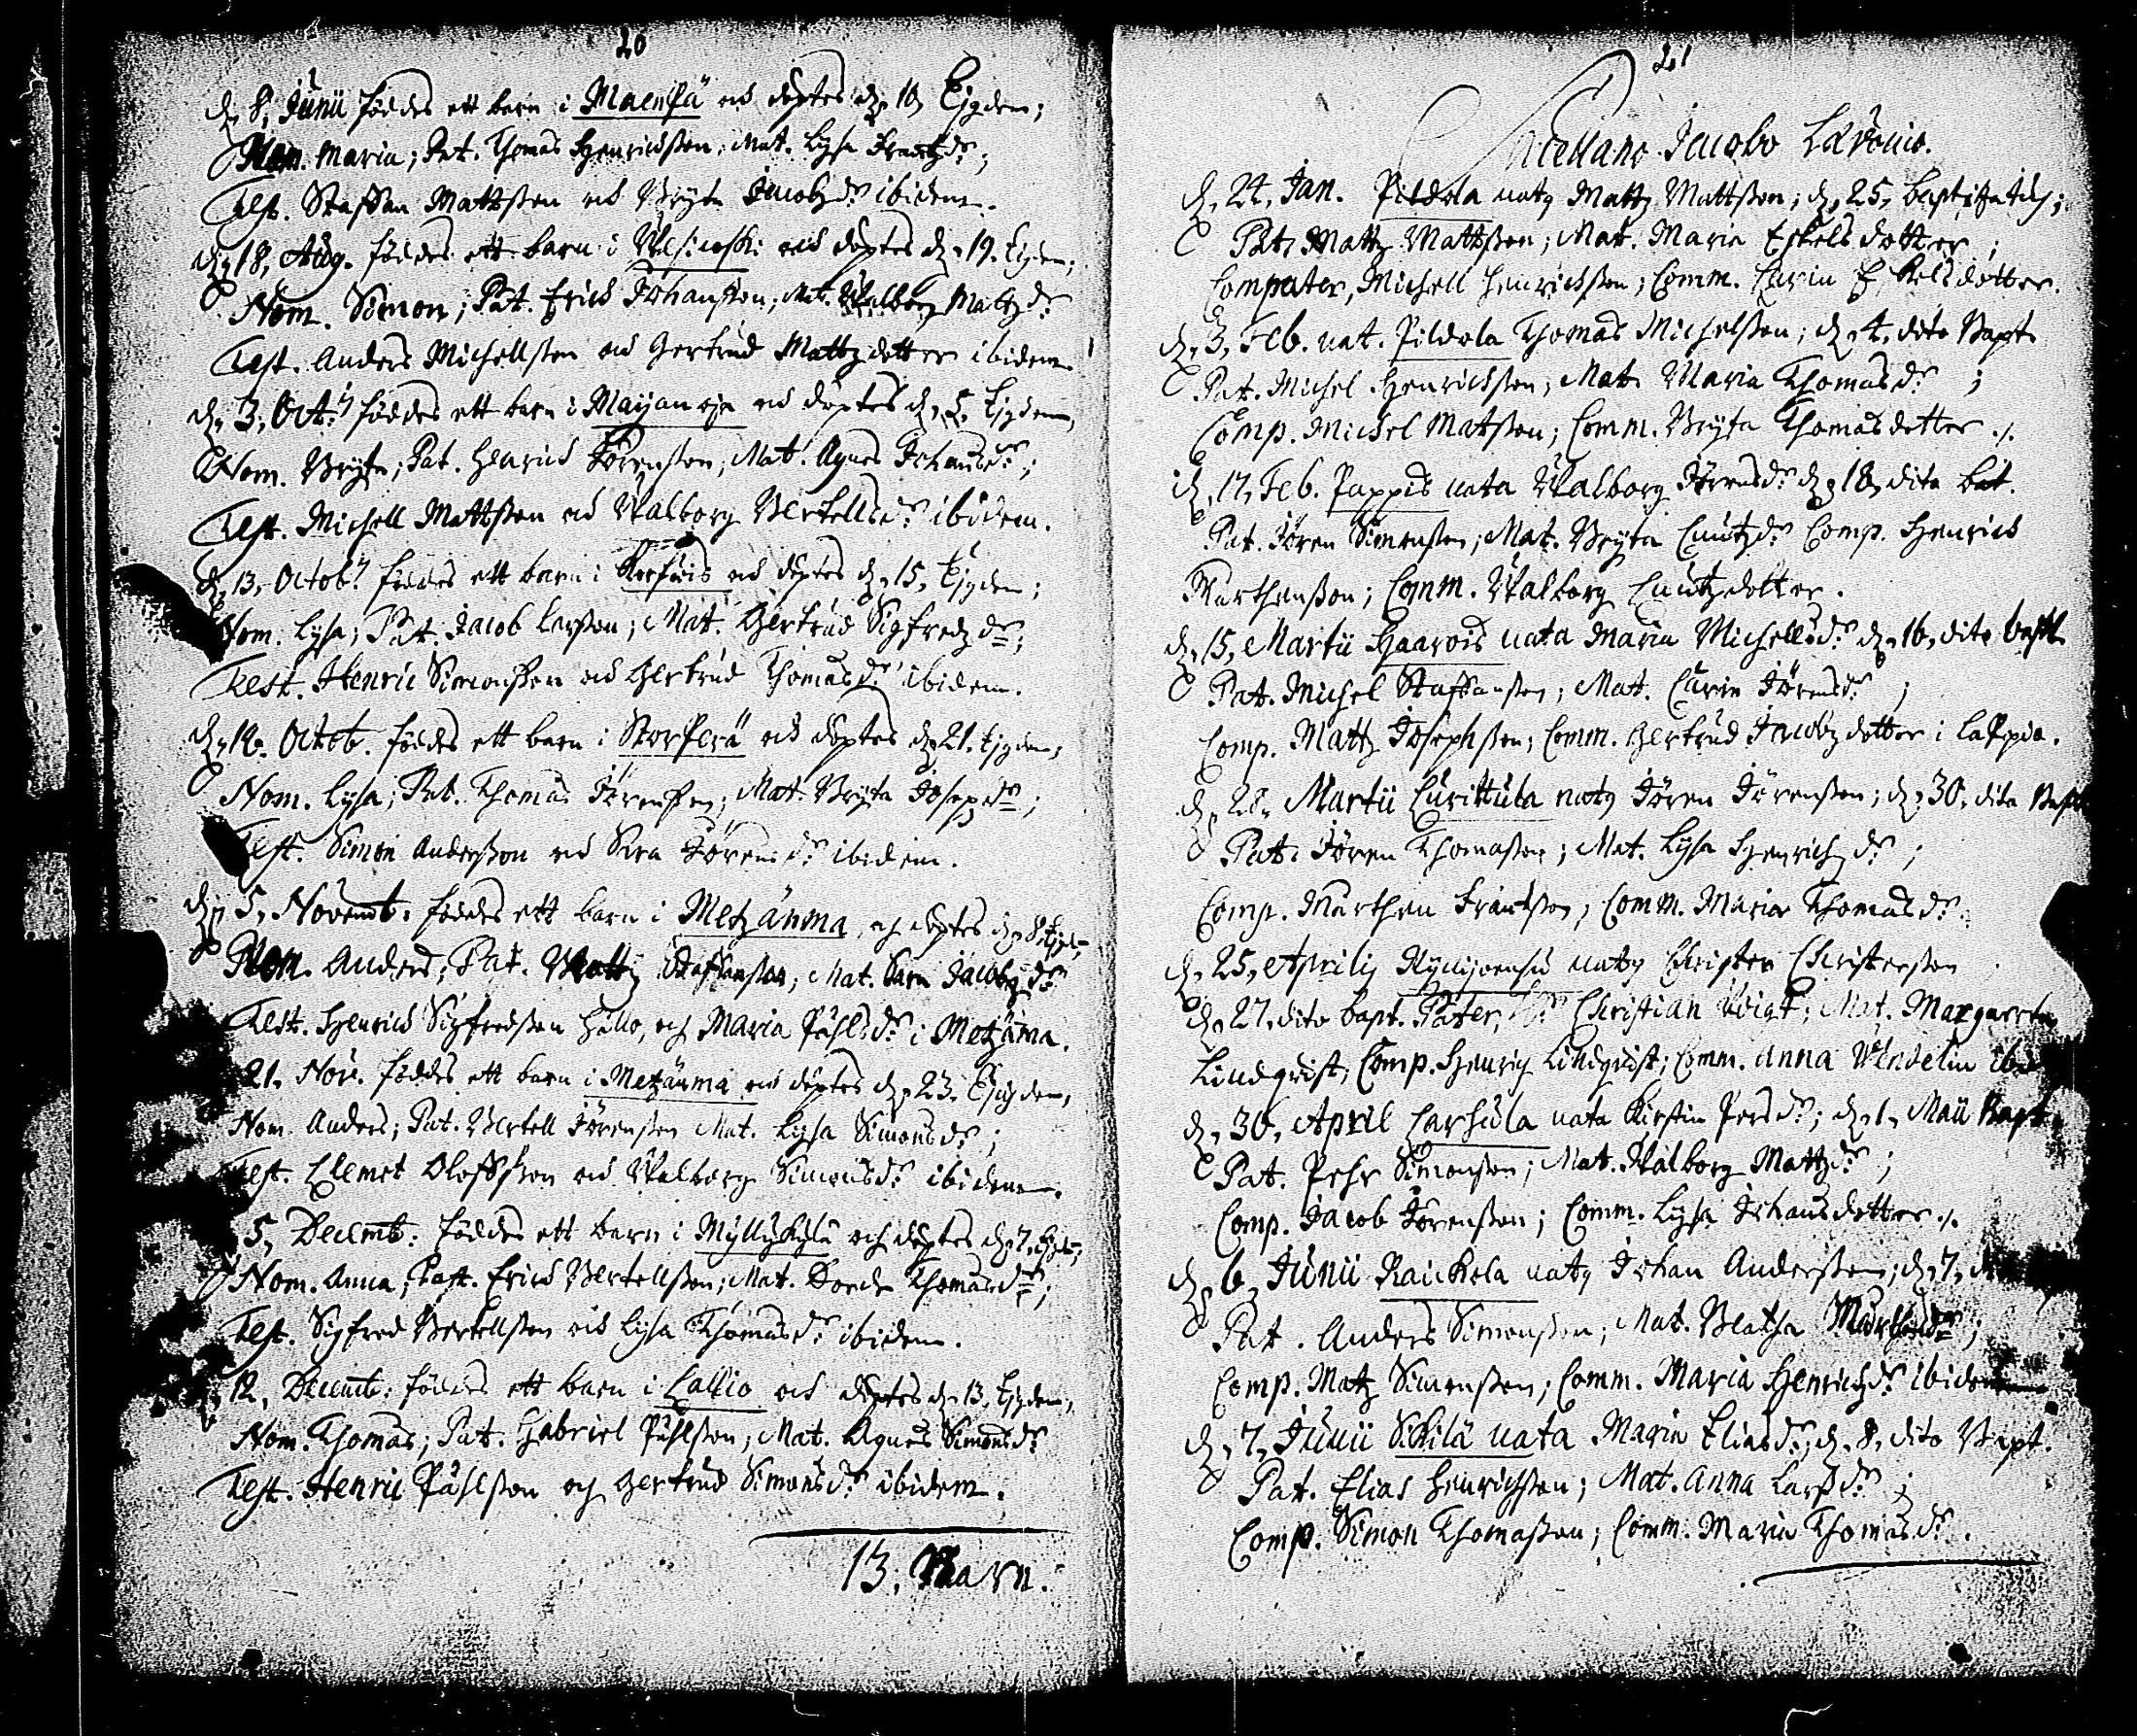 20
d. 8. Junii föddes ett barn i Maenpä och döptes d. 10 Ejusdem;
Nom. Maria; Pat. Thomas Henrichsson; Mat. Lysa Frantz dr;
Test. Staffan Mattsson och Bryta Jacobz dr ibidem.
d. 18. Aug. föddes ett barn i Wesikoski och döptes d. 19. Ejusdem;
Nom. Simon; Pat. Erich Johansson; Mat. Walborg Mattz dr
Test. Anders Michellsson och Gertrud Mattz dotter ibidem.
d. 3. Oct. föddes ett barn i Mayanoja och döptes d. 5. Ejusdem,
Nom. Bryta; Pat. Henrich Jörensson, Mat. Agnes Johans dr;
Test. Michell Mattsson och Walborg Bertells dr ibidem.
d. 13. Octob. föddes ett barn i och döptes d. 15. Ejusdem;
Nom. Lysa; Pat. Jacob Larsson; Mat. Gertrud Sigfredz dr;
Test. Henric Simonsson och Gertrud Thomas dr ibidem.
d. 19. Octob. föddes ett barn i Storperä och döptes d. 21. Ejusdem;
Nom. Lysa; Pat. Thomas Jörensson; Mat. Bryta Joseps dr;
Test. Simon Andersson och Sara Jörens dr ibidem.
d. 5. Novemb. föddes ett barn i Metzänma och döptes d. 8. Ejusd;
Nom. Anders; Pat. Mattz Staffansson; Mat. Sara Jacobz dr
Test. Henrich Sigfredsson Hållo, och Maria Påhls dr i Metzäma.
21. Nov. föddes ett barn i Metzänma och döptes d. 23. Ejusdem,
Nom. Anders; Pat. Bertell Jörensson Mat. Lysa Simons dr;
Test. Clemet Oloffsson och Walborg Simons dr ibidem.
5. Decemb. föddes ett barn i Myllykylä och döptes d. 7. Ejusd;
Nom. Anna; Pat. Erich Bertellsson; Mat. Dorde Thomas dr;
Test. Sigfred Bertellsson och Lysa Thomas dr ibidem.
12. Decemb. föddes ett barn i Callio och döptes d. 13. Ejusdem,
Nom. Thomas; Pat. Gabriel Påhlsson; Mat. Agnes Simons dr
Test. Henric Påhlsson och Gertrud Simons dr ibidem.
13. Barn.
21
Jacobo Lavonio.
d. 24. Jan. Pildola natq Mattz Mattsson; d. 25. baptizatus;
Pat. Mattz Mattsson; Mat. Maria Eskels dotter;
Compater, Michell Henrichsson; Comm. Carin Eskelsdotter.
d. 3. Feb. nat. Pildola Thomas Michelsson; d. 4. dito Bapt.
Pat. Michel Henrichsson; Mat. Maria Thomas dr;
Comp. Michel Matsson; Comm. Bryta Thomasdotter.
d. 17. Feb. Pappis nata Walborg Jörens dr d. 18 dito bat.
Pat. Jören Simonsson; Mat. Bryta Cnutz dr Comp. Henrich
Marthensson; Comm. Walborg Cnutzdotter.
d. 15. Martii Haarois nata Maria Michells dr d. 16. dito bapt.
Pat. Michel Staffansson; Mat. Carin Jörens dr;
Comp. Mattz Josephsson; Comm. Gertrud Jacobz dotter i
d. 28. Martii Curittula natq Jören Jörensson; d. 30. dito Bapt
Pat. Jören Thomasson; Mat. Lysa Henrichz dr;
Comp. Marthen Frantsson; Comm. Maria Thomas dr.
d. 25. Aprilis natq Christer Christersson
d. 27. dito bapt. Pater, Christian Voigt; Mat. Margareta
Lindqvist; Comp. Henrich Lindqvist; Comm. Anna Wendelin ibid
d. 30. April Carhula nata Kirstin Pers dr; d. 1. Maii Bapt.
Pat. Pehr Simonsson; Mat. Walborg Mattz dr;
Comp. Jacob Jörensson; Comm. Lysa Johansdotter.
d. 6. Junii Raickola natq Johan Andersson; d. 7.
Pat. Anders Simonsson; Mat. Beatha Marthens dr;
Comp. Matz Simonsson; Comm. Maria Henrichz dr ibidem
d. 7. Junii Sikilä nata Maria Elias dr; d. 8. dito Bapt.
Pat. Elias Henrichsson; Mat. Anna Lars dr;
Comp. Simon Thomasson; Comm. Maria Thomas dr.